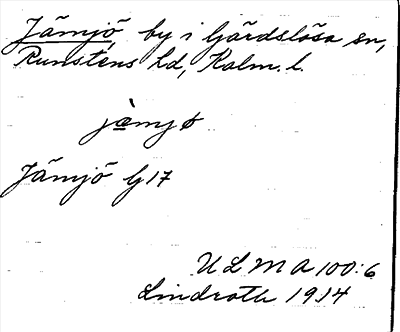 Jämjö, by i Gärdslösa sn,
Runstens hd, Kalm. l.
jæ̀mjø
Jämjö G17
ULMA 100:6
Lindroth 1914